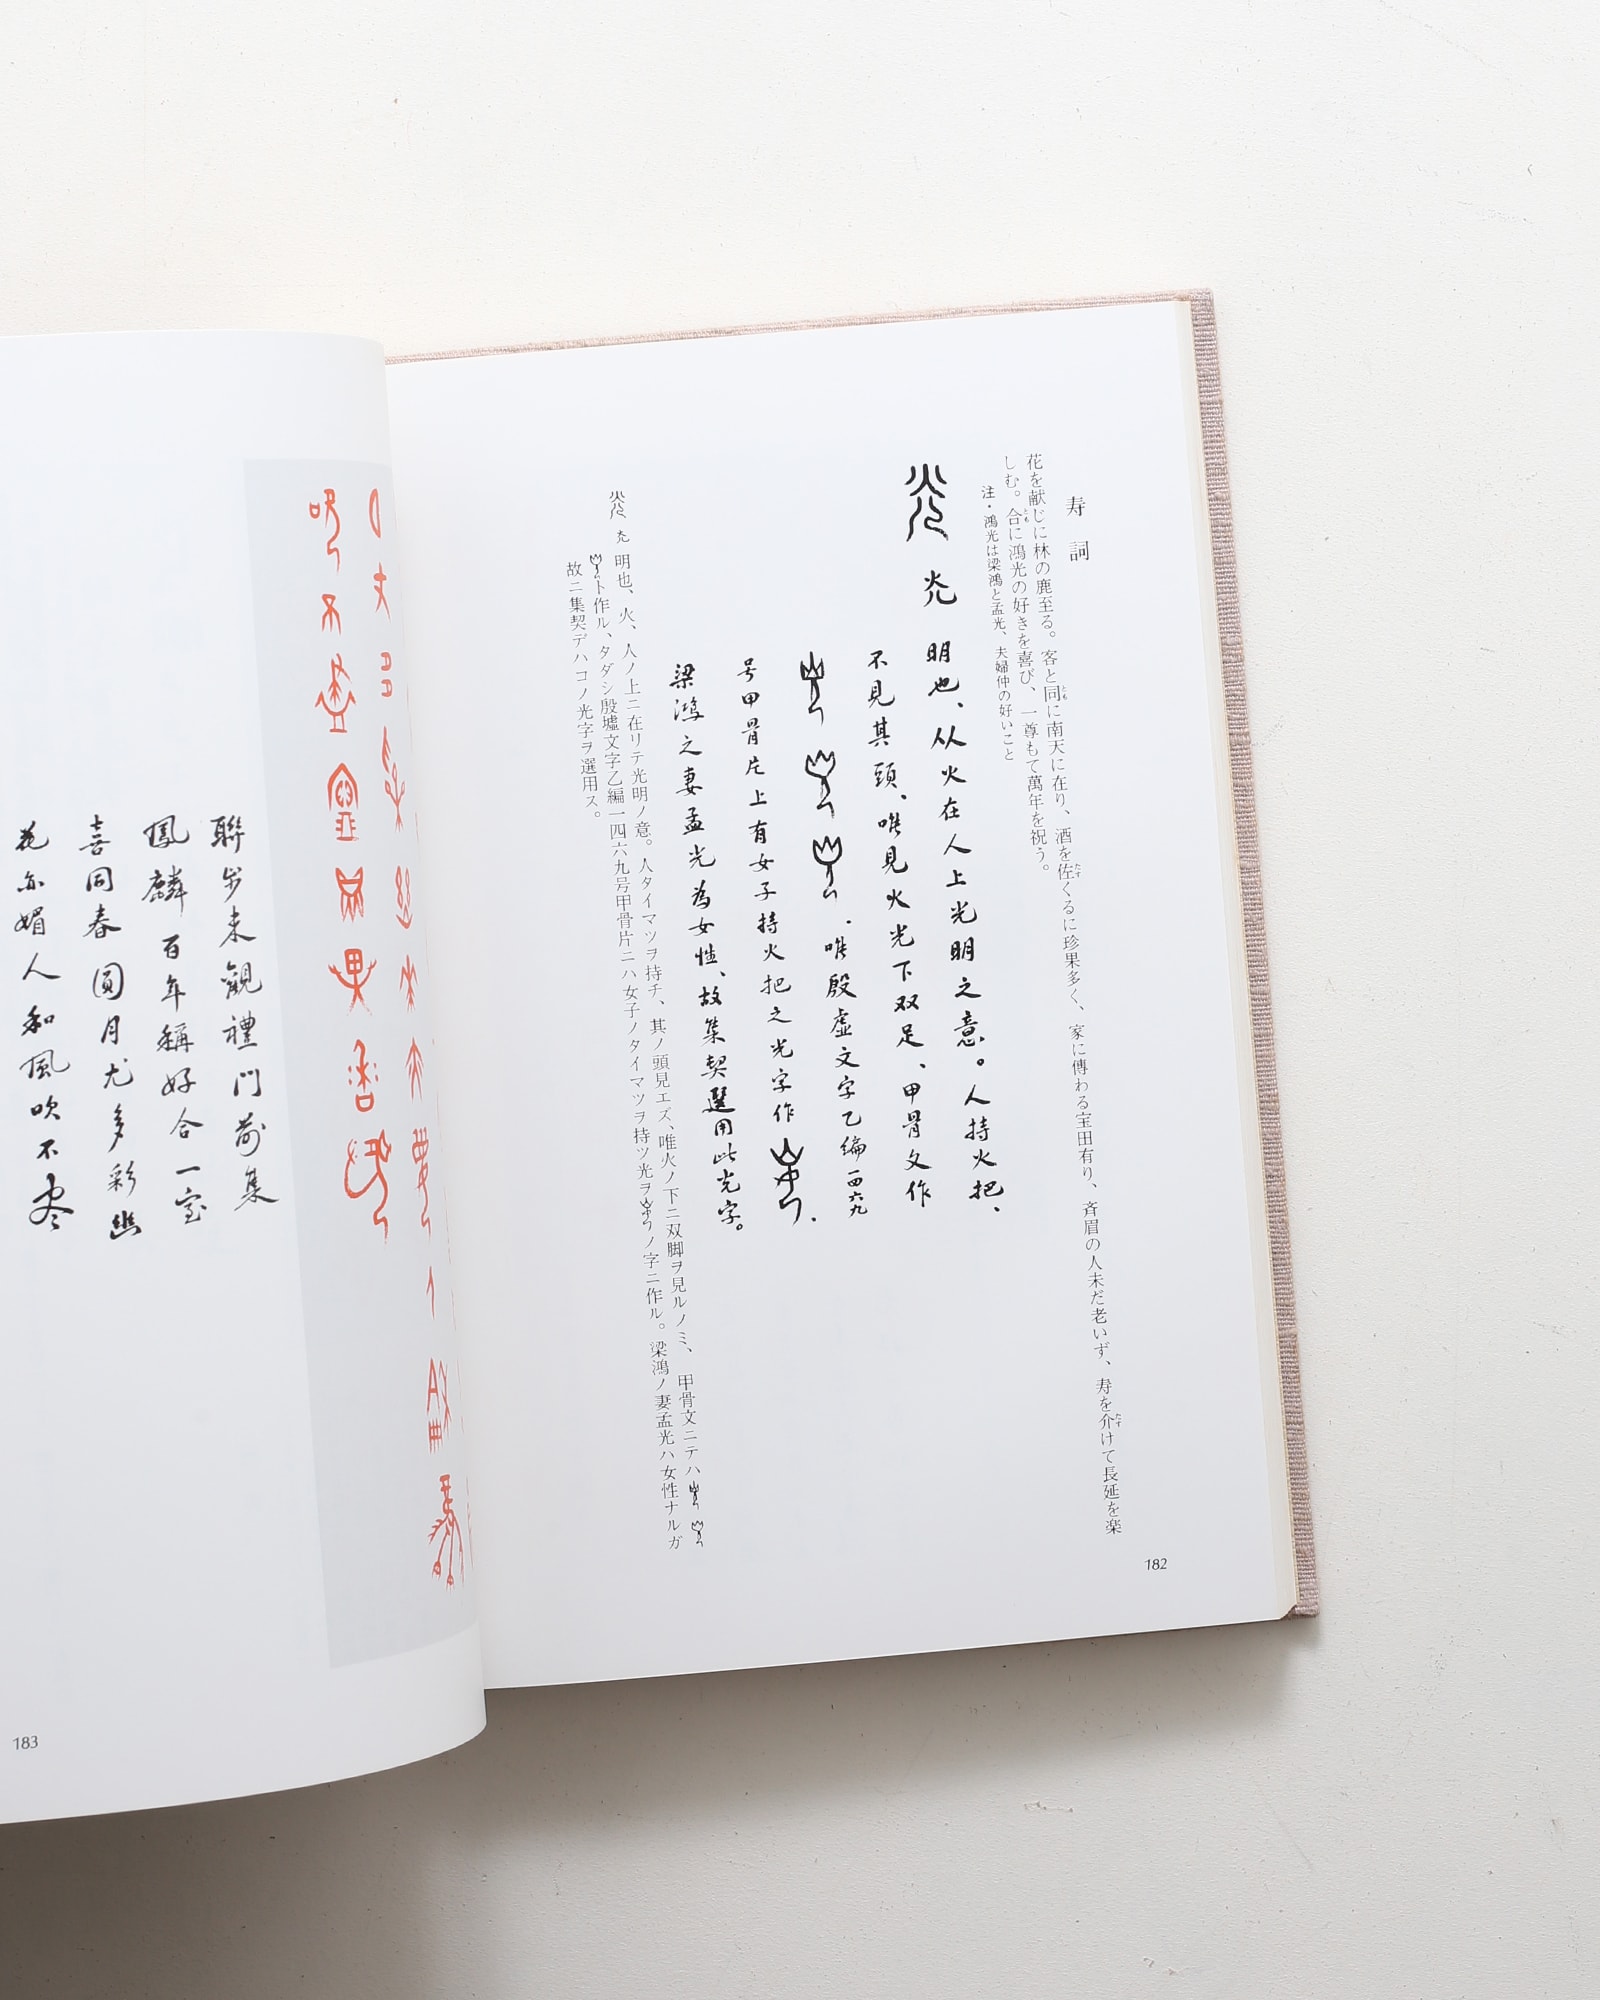 寿詞
花を献じに林の鹿至る。客と同に南天に在り、酒を佐くるに珍果多く、家に傳わる宝田有り、斉眉の人未だ老いず、寿を介けて長延を楽
しむ。合に鴻光の好きを喜び、一尊もて萬年を祝う。
注・鴻光は梁鴻と孟光、夫婦仲の好いこと
光 明也、从火在人上光明之意。人持火把、
不見其頭、唯見火光下双足、甲骨文作
。唯殷虚文字乙編一四六九
号甲骨片上有女子持火把之光字作
梁鴻之妻孟光為女性、故集契選用此光字。
光 明也、火、人ノ上ニ在リテ光明ノ意。人タイマツヲ持チ、其ノ頭見エズ、唯火ノ下ニ双脚ヲ見ルノミ、甲骨文ニテハ
ト作ル、タダシ殷墟文字乙編一四六九号甲骨片ニハ女子ノタイマツヲ持ツ光ヲノ字ニ作ル。梁鴻ノ妻孟光ハ女性ナルガ
故ニ集契デハコノ光字ヲ選用ス。
182
聯步来觀禮門前集
鳳麟百年稱好合一室
喜同春圓月尤多彩幽
花亦媚人和風吹不尽
183